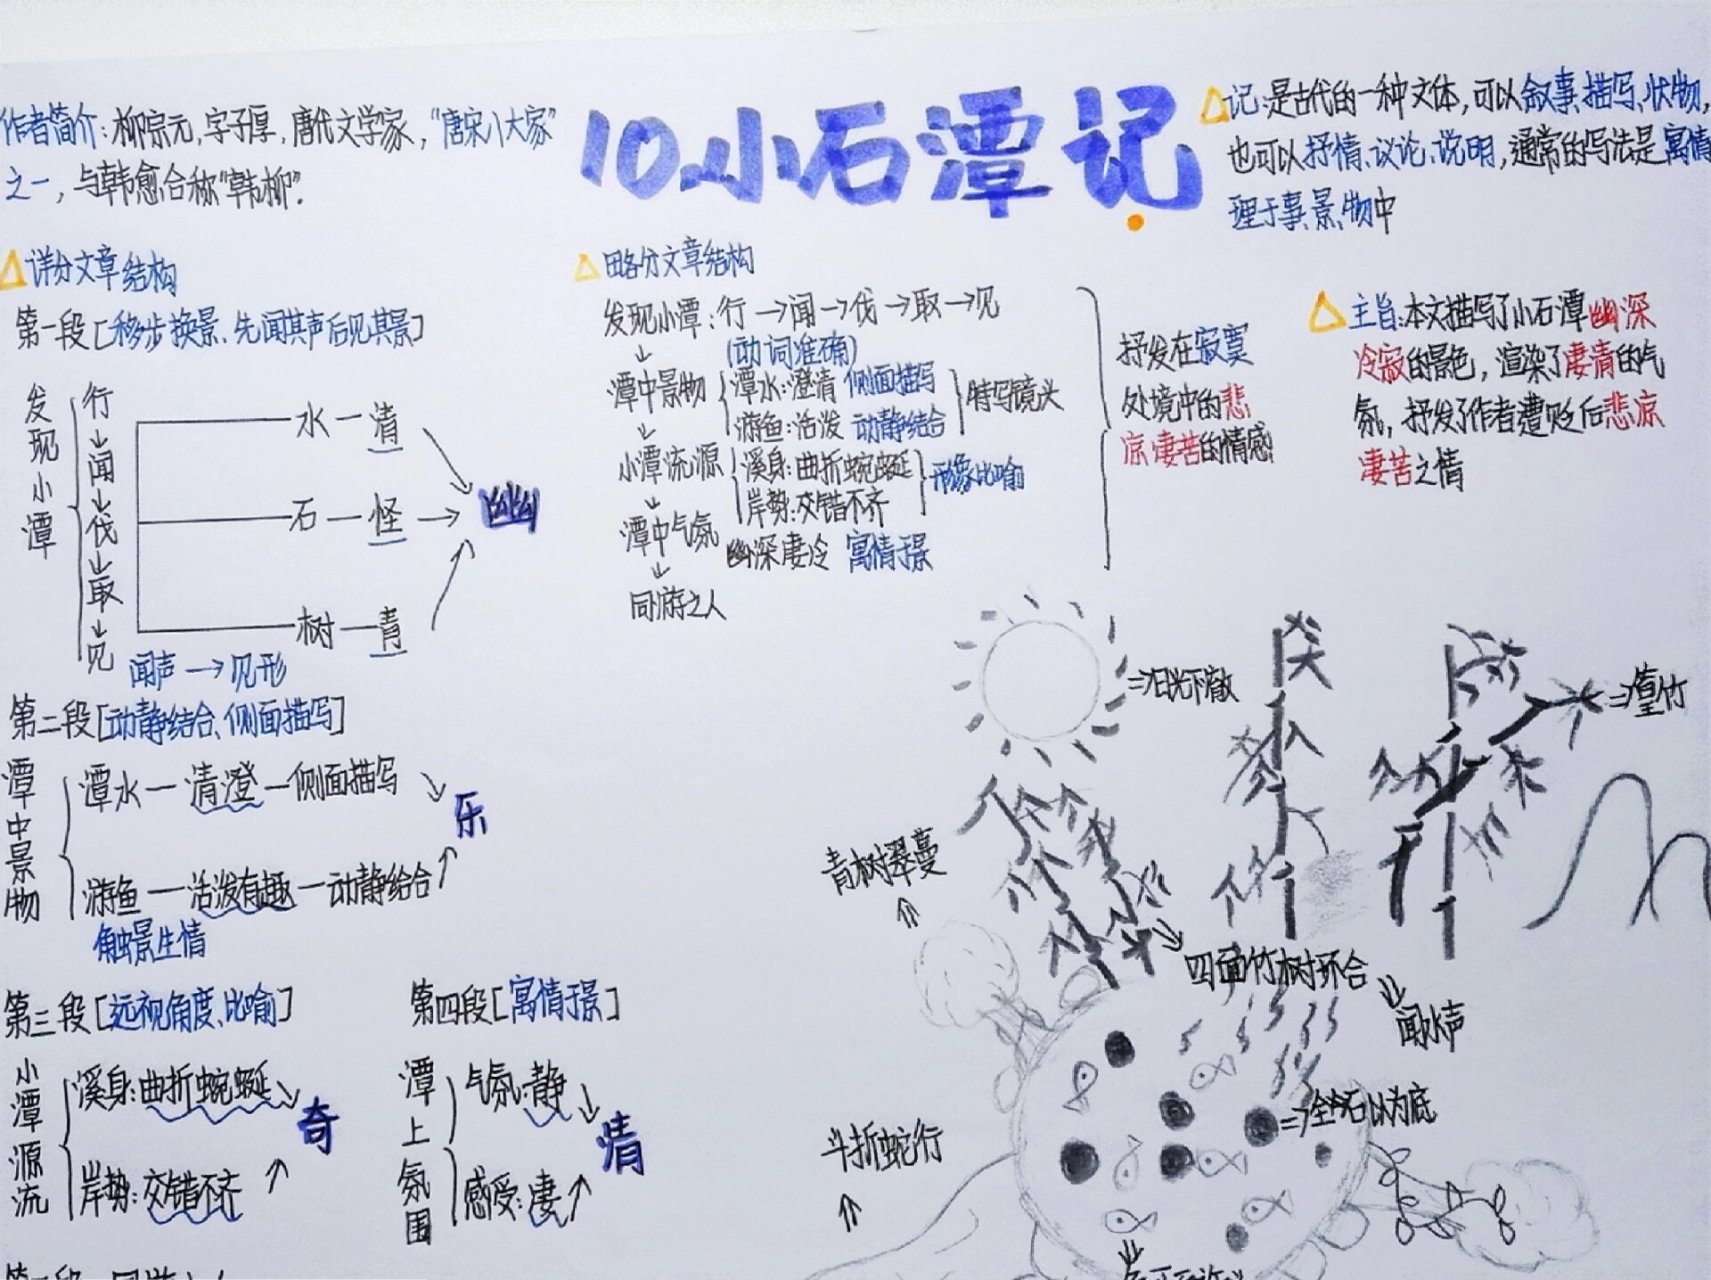 10小石潭记
作者简介:柳宗元,字子厚,唐代文学家,"唐宋八大家"
之一,与韩愈合称"韩柳".
记:是古代的一种文体,可以叙事、描写、状物,
也可以抒情、议论、说明,通常的写法是寓情
理于事、景、物中
详分文章结构
第一段[移步换景、先闻其声后见其景]
发现小潭
行→闻→伐→取→见
水—清
石—怪
树—青
幽
闻声→见形
第二段[动静结合、侧面描写]
潭中景物
潭水—清澄—侧面描写
游鱼—活泼有趣—动静结合
乐
触景生情
第三段[远视角度、比喻]
小潭源流
溪身:曲折蜿蜒
岸势:交错不齐
奇
第四段[寓情于景]
潭上氛围
气氛:静
感受:凄
清
略分文章结构
发现小潭:行→闻→伐→取→见
(动词准确)
潭中景物
潭水:澄清 侧面描写
游鱼:活泼 动静结合
特写镜头
小潭流源
溪身:曲折蜿蜒
岸势:交错不齐
形象比喻
潭中气氛
幽深凄冷 寓情于景
同游之人
抒发在寂寞
处境中的悲
凉凄苦的情感
主旨:本文描写了小石潭幽深
冷寂的景色,渲染了凄清的气
氛,抒发了作者遭贬后悲凉
凄苦之情
⇒日光下澈
⇒篁竹
青树翠蔓
四面竹树环合
闻水声
⇒全石以为底
斗折蛇行